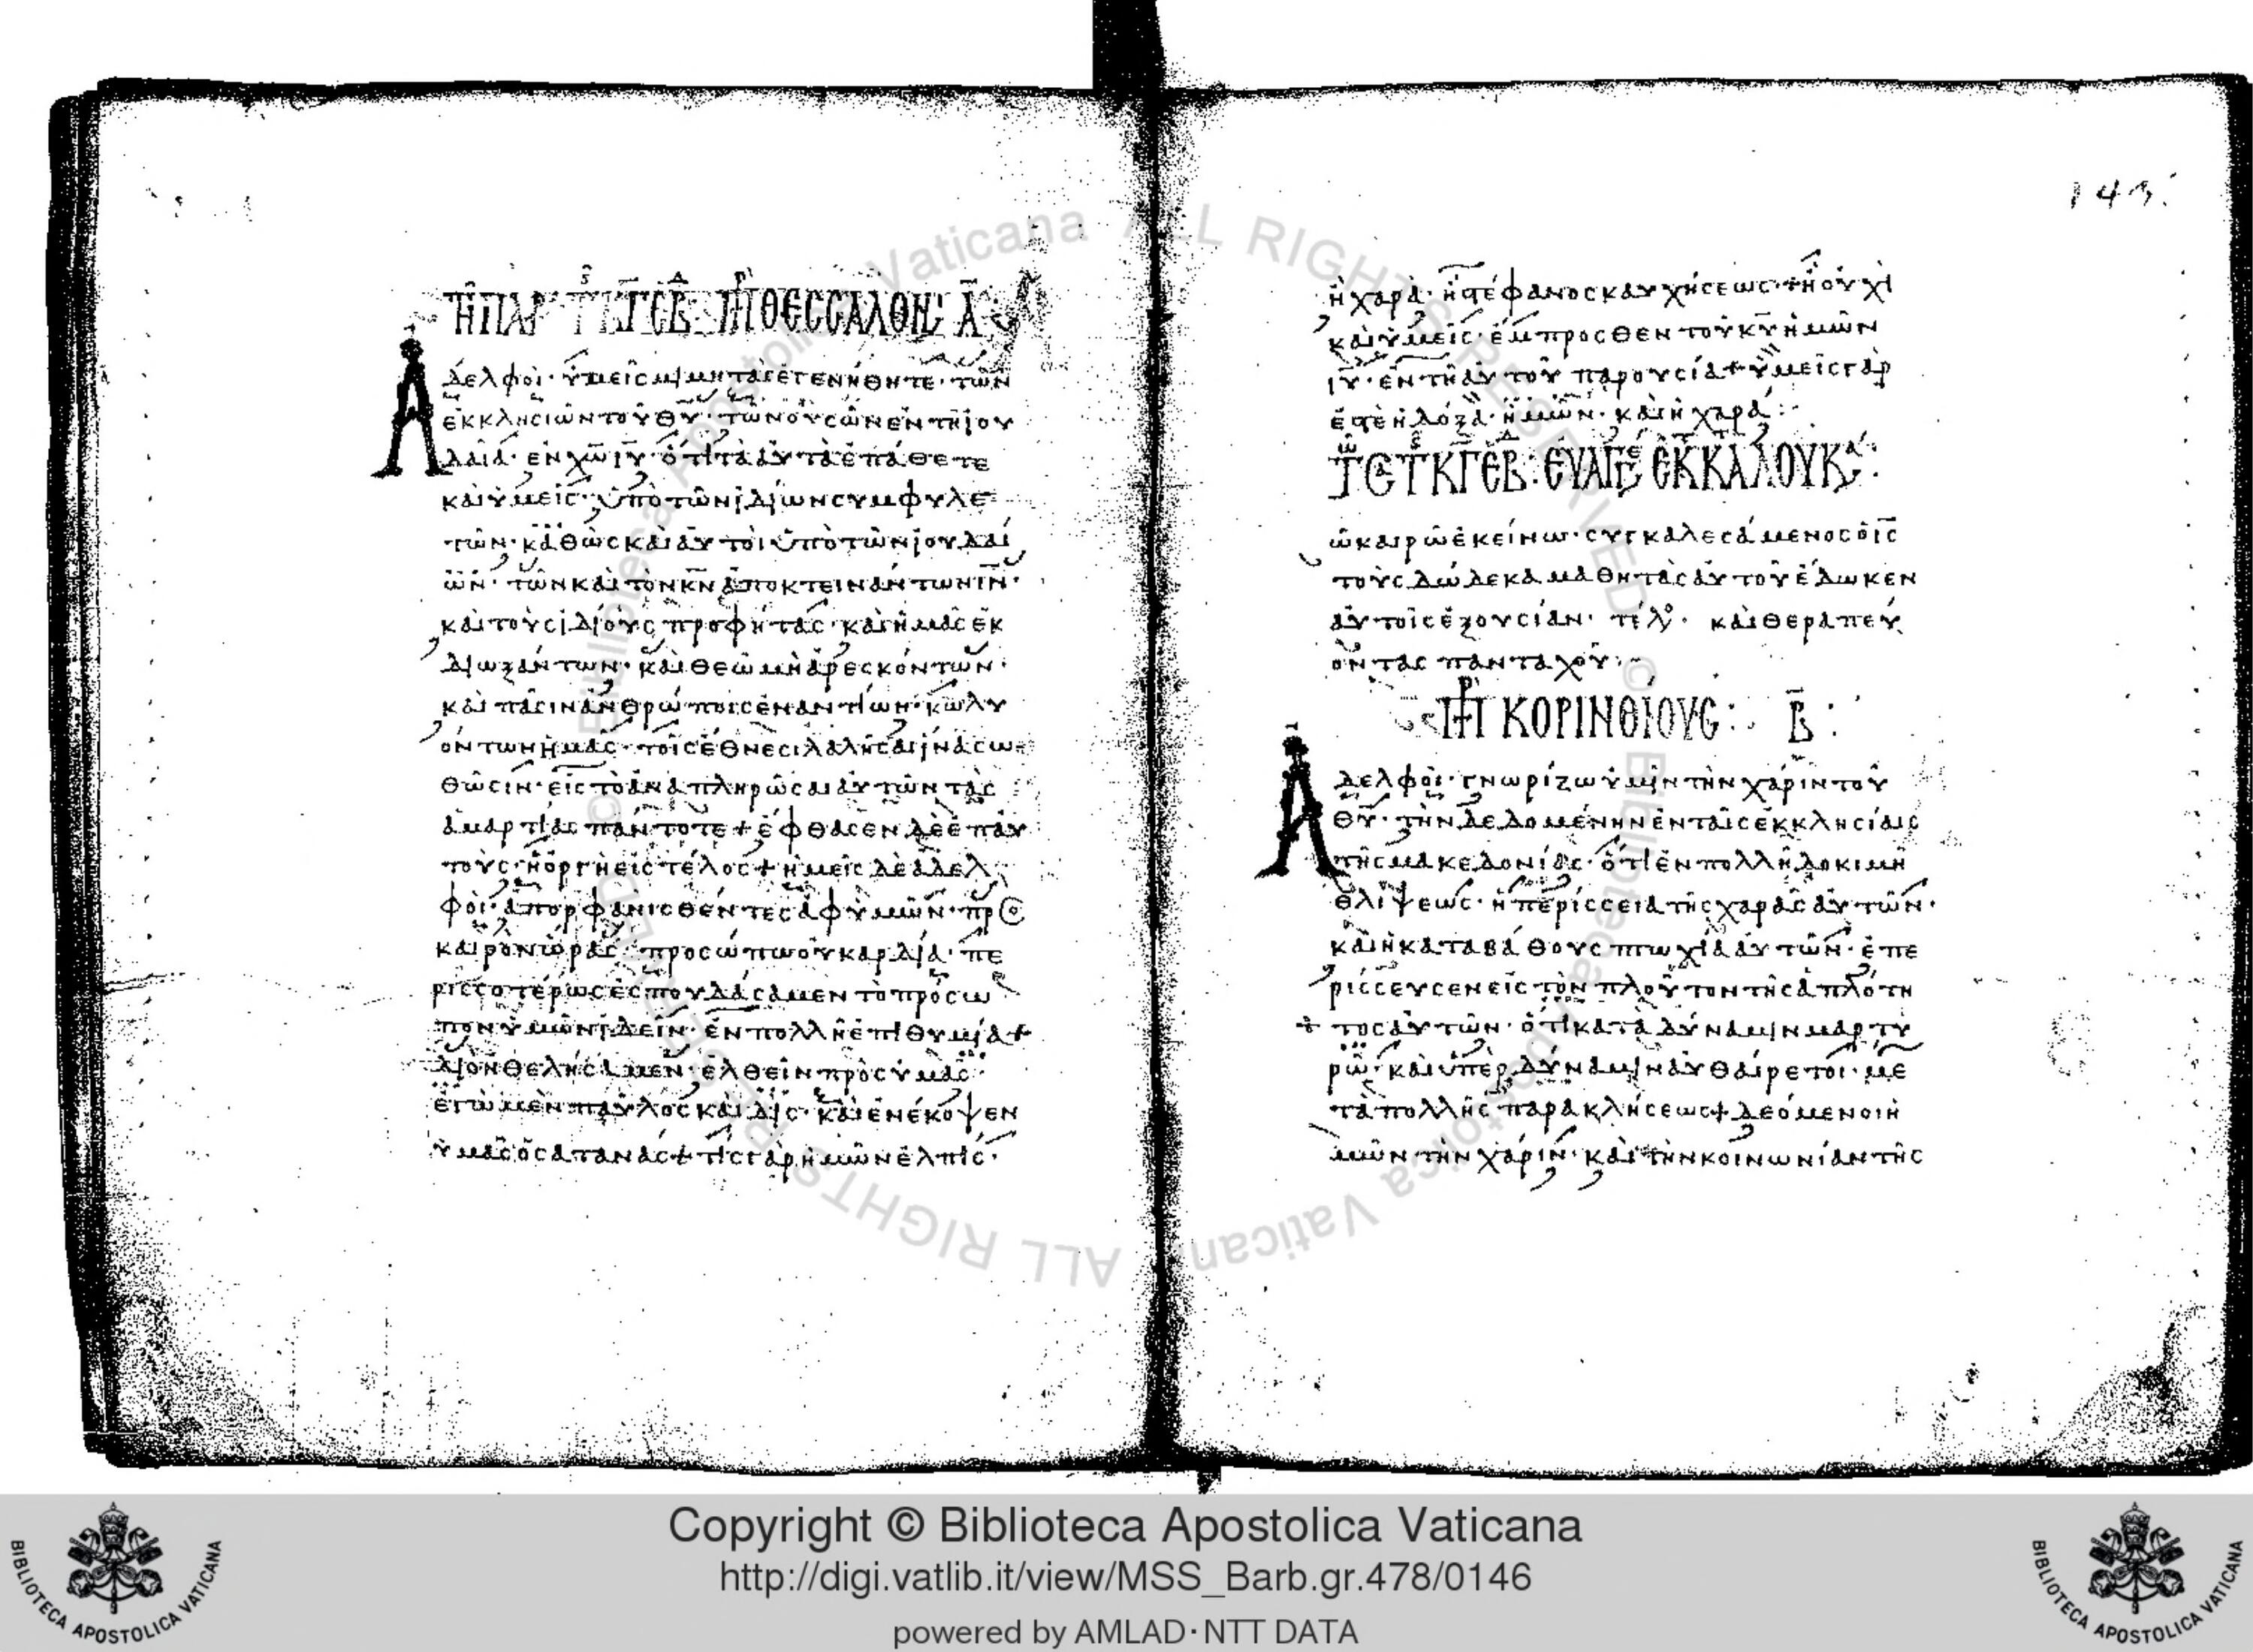 ἀδελφοὶ· ὑμεῖς μιμηταὶ ἐγενήθητε· τῶν
ἐκκλησιῶν τοῦ θυ· τῶν οὐσῶν ἐν τῆ ἰου
δαία· ἐν χω ιυ· ὅτι τὰ αὐτὰ ἐπάθετε
καὶ ὑμεῖς· ὑπὸ τῶν ἰδίων συμφυλε
τῶν· καθὼς καὶ αὐτοὶ ὑπὸ τῶν ἰουδαί
ων· τῶν καὶ τὸν κν ἀποκτεινάντων ιν·
καὶ τοὺς ἰδίους προφήτας· καὶ ἡμᾶς ἐκ
διωξάντων· καὶ θεῶ μὴ ἀρεσκόντων·
καὶ πᾶσιν ἀνθρώποις ἐναντίων· κωλυ
όντων ἡμᾶς· τοῖς ἔθνεσι λαλῆσαι ἵνα σω
θῶσιν· εἰς τὸ ἀναπληρῶσαι αὐτῶν τὰς
ἁμαρτίας πάντοτε + ἔφθασεν δὲ ἐπ αὐ
τοὺς· ἡ ὀργὴ εἰς τέλος + ἡμεῖς δὲ ἀδελ
φοὶ· ἀπορφανισθέντες ἀφ ὑμῶν· πρ
καιρὸν ὥρας· προσώπω οὐ καρδία· πε
ρισσοτέρως ἐσπουδάσαμεν τὸ πρόσω
πον ὑμῶν ἰδεῖν· ἐν πολλῆ ἐπιθυμία +
διὸ ἠθελήσαμεν· ἐλθεῖν πρὸς ὑμᾶς·
ἐγὼ μὲν παῦλος καὶ δὶς· καὶ ἐνέκοψεν
ὑμᾶς ὁ σατανάς + τίς γὰρ ἡμῶν ἐλπὶς·
143.
ἢ χαρὰ· ἢ στέφανος καυχήσεως· ἢ οὐχὶ
καὶ ὑμεῖς· ἔμπροσθεν τοῦ κυ ἡμῶν
ιυ· ἐν τῆ αὐτοῦ παρουσία + ὑμεῖς γάρ
ἐστε ἡ δόξα· ἡμῶν· καὶ ἡ χαρά:
ῶ καιρῶ ἐκείνω· συγκαλεσάμενος ὁ ις
τοὺς δώδεκα μαθητὰς αὐτοῦ ἔδωκεν
αὐτοῖς ἐξουσίαν· τέλ. καὶ θεραπεύ
οντας πανταχοῦ:
ΠΡ ΚΟΡΙΝΘΙΟΥΣ: Β:
ἀδελφοὶ· γνωρίζω ὑμῖν τὴν χάριν τοῦ
θυ· τὴν δεδομένην ἐν ταῖς ἐκκλησίαις
τῆς μακεδονίας· ὅτι ἐν πολλῆ δοκιμῆ
θλίψεως· ἡ περίσσεια τῆς χαρᾶς αὐτῶν·
καὶ ἡ κατα βάθους πτωχία αὐτῶν· ἐπε
ρίσσευσεν εἰς τὸν πλοῦτον τῆς ἁπλότη
τος αὐτῶν· ὅτι κατὰ δύναμιν μαρτυ
ρῶ· καὶ ὑπὲρ δύναμιν αὐθαίρετοι· με
τὰ πολλῆς παρακλήσεως + δεόμενοι ἡ
μῶν τὴν χάριν· καὶ τὴν κοινωνίαν τῆς
Copyright © Biblioteca Apostolica Vaticana
http://digi.vatlib.it/view/MSS_Barb.gr.478/0146
powered by AMLAD·NTT DATA
BIBLIOTECA APOSTOLICA VATICANA
BIBLIOTECA APOSTOLICA VATICANA